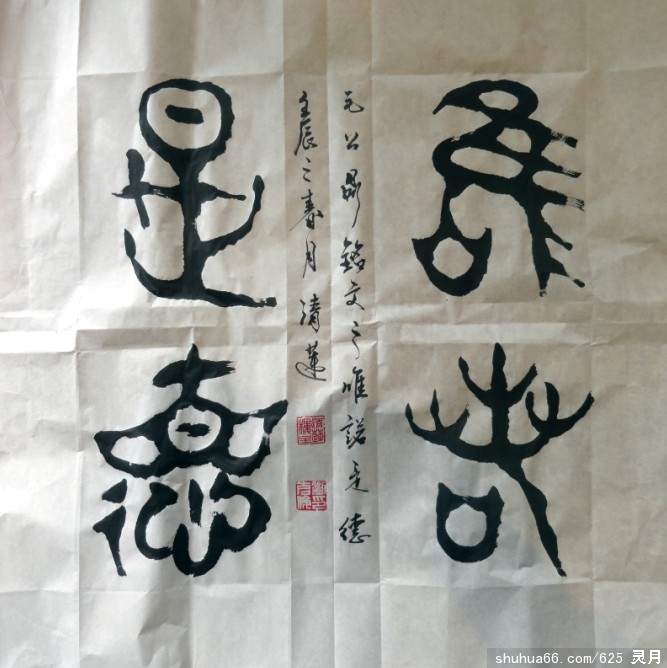 唯
诺
是
德
毛公鼎铭文之唯諾是德
壬辰之春月清蓮
shuhua66.com/625 灵月